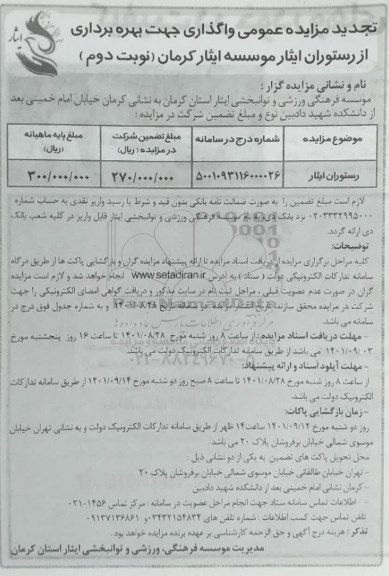 تجدید مزایده عمومی واگذاری جهت بهره برداری
از رستوران ایثار موسسه ایثار کرمان (نوبت دوم)
ایثار
نام و نشانی مزایده گزار:
موسسه فرهنگی ورزشی و توانبخشی ایثار استان کرمان به نشانی کرمان خیابان امام خمینی بعد
از دانشکده شهید دادبین نوع و مبلغ تضمین شرکت در مزایده:
موضوع مزایده شماره درج در سامانه مبلغ تضمین شرکت در مزایده (ریال) مبلغ پایه ماهیانه (ریال)
رستوران ایثار ۵۰۰۱۰۹۳۱۱۶۰۰۰۰۲۶ ۲۷۰/۰۰۰/۰۰۰ ۳۰۰/۰۰۰/۰۰۰
لازم است مبلغ تضمین را به صورت ضمانت نامه بانکی بدون قید و شرط یا رسید واریز نقدی به حساب شماره
۰۲۰۳۳۳۲۹۹۵۰۰۰ نزد بانک دی به نام موسسه فرهنگی ورزشی و توانبخشی ایثار قابل واریز در کلیه شعب بانک
دی ارائه گردد.
توضیحات:
کلیه مراحل برگزاری مزایده از دریافت اسناد مزایده تا ارائه پیشنهاد مزایده گران و بازگشایی پاکت ها از طریق درگاه
سامانه تدارکات الکترونیکی دولت (ستاد) به آدرس www.setadiran.ir انجام خواهد شد و لازم است مزایده
گران در صورت عدم عضویت قبلی، مراحل ثبت نام در سایت مذکور و دریافت گواهی امضای الکترونیکی را جهت
شرکت در مزایده محقق سازند. تاریخ انتشار مزایده در سامانه مورخ ۱۴۰۱/۰۸/۲۸ و به شماره جدول فوق درج در
سامانه می باشد.
- مهلت دریافت اسناد مزایده: از ساعت ۸ روز شنبه مورخ ۱۴۰۱/۰۸/۲۸ تا ساعت ۱۶ روز پنجشنبه مورخ
۱۴۰۱/۰۹/۰۳ می باشد از طریق سامانه تدارکات الکترونیک دولت می باشد.
- مهلت آپلود اسناد و ارائه پیشنهاد:
از ساعت ۸ روز شنبه مورخ ۱۴۰۱/۰۸/۲۸ تا ساعت ۸ صبح روز دو شنبه مورخ ۱۴۰۱/۰۹/۱۴ از طریق سامانه تدارکات
الکترونیک دولت می باشد.
- زمان بازگشایی پاکات:
روز دو شنبه مورخ ۱۴۰۱/۰۹/۱۴ ساعت ۱۴ ظهر از طریق سامانه تدارکات الکترونیک دولت و به نشانی تهران خیابان
موسوی شمالی خیابان برفروشان پلاک ۲۰ می باشد.
محل تحویل پاکت های تضمین به یکی از دو نشانی ذیل:
- تهران خیابان طالقانی خیابان موسوی شمالی خیابان برفروشان پلاک ۲۰
- کرمان نشانی امام خمینی بعد از دانشکده شهید دادبین
- اطلاعات تماس سامانه ستاد جهت انجام مراحل عضویت در سامانه: مرکز تماس ۱۴۵۶-۰۲۱
تلفن تماس جهت کسب اطلاعات: شماره تلفن های ۰۳۴۳۲۱۵۴۸۳۴ و ۰۹۱۳۷۱۳۶۸۶۱
تذکر: هزینه درج آگهی و حق الزحمه کارشناسی بر عهده برنده مزایده خواهد بود.
مدیریت موسسه فرهنگی، ورزشی و توانبخشی ایثار استان کرمان